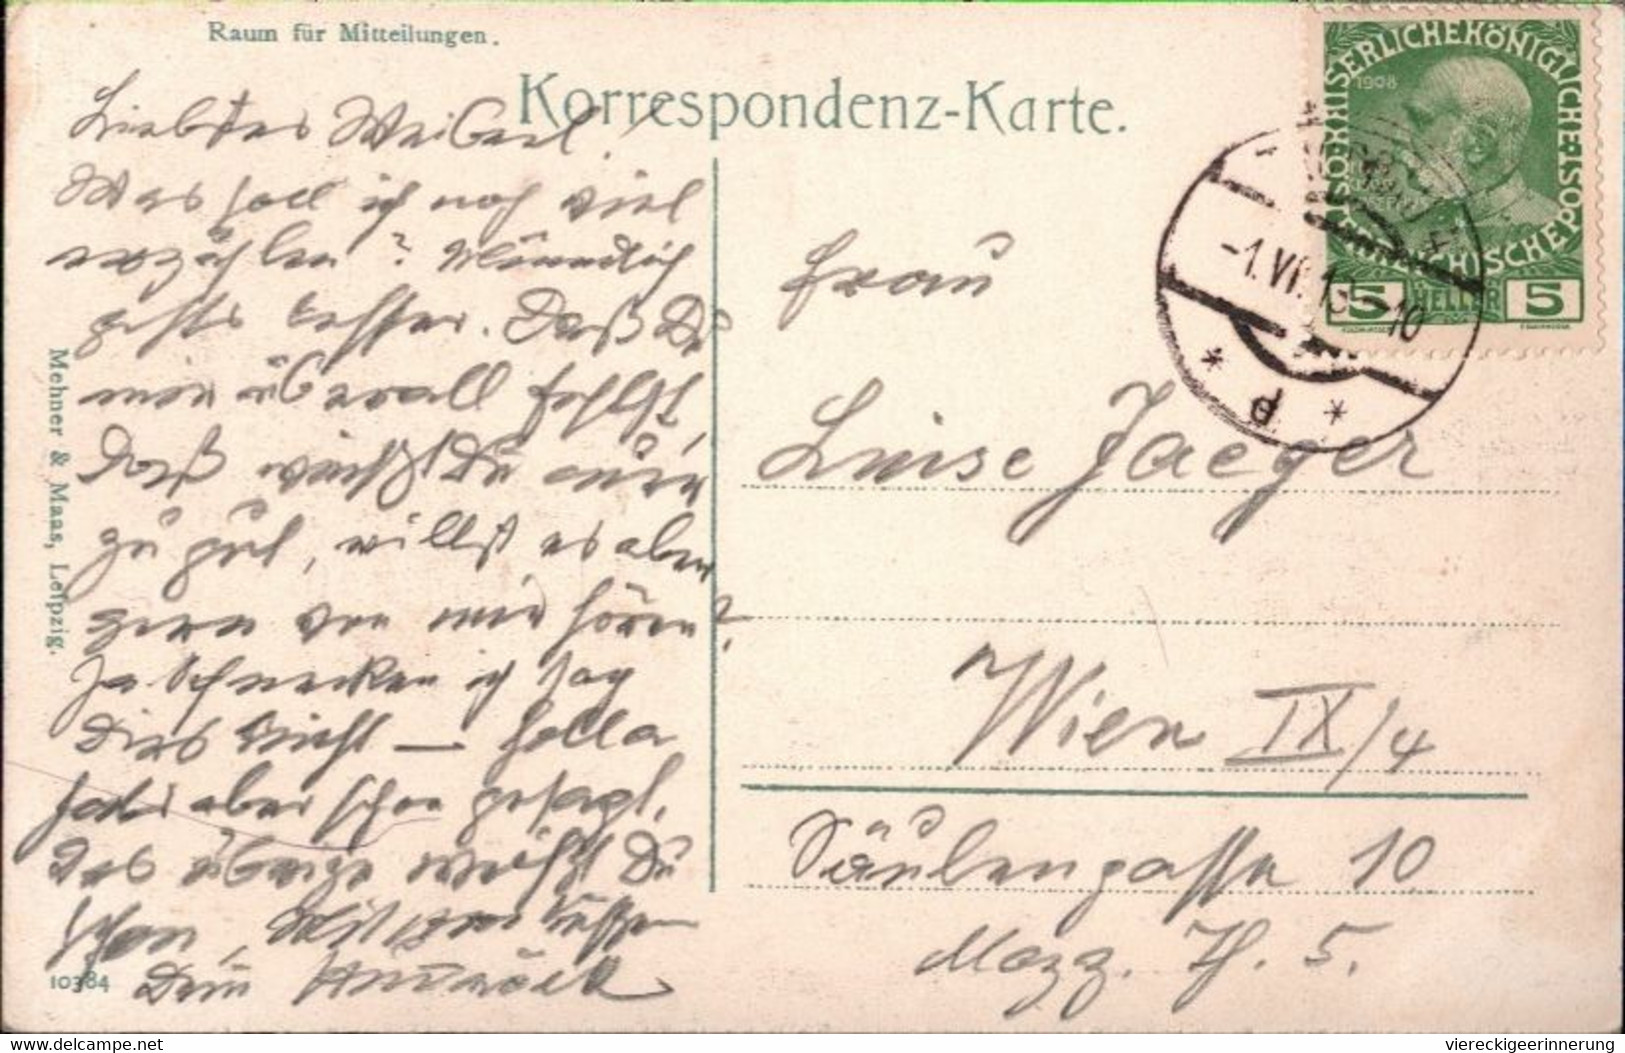 Raum für Mitteilungen.
Korrespondenz-Karte.
Liebstes Weiberl!
Was soll ich noch viel
erzählen? Mündlich
geht's besser. Daß Du
mir überall fehlst,
Daß weißt Du nur
zu gut, willst es aber
gern von mir hören?
Ja Schnecken ich sag
Dies nicht — holla
hab's aber schon gesagt.
Das übrige weißt Du
schon. Mit Küssen
Dein
Mehner & Maas, Leipzig.
10384
KAISERLICHE KÖNIGLICHE
ÖSTERREICHISCHE POST
1908
5 HELLER 5
-1.VI.13-10
* d *
Frau
Luise Jaeger
Wien IX/4
Säulengasse 10
Mezz. Th. 5.
viereckigeerinnerung